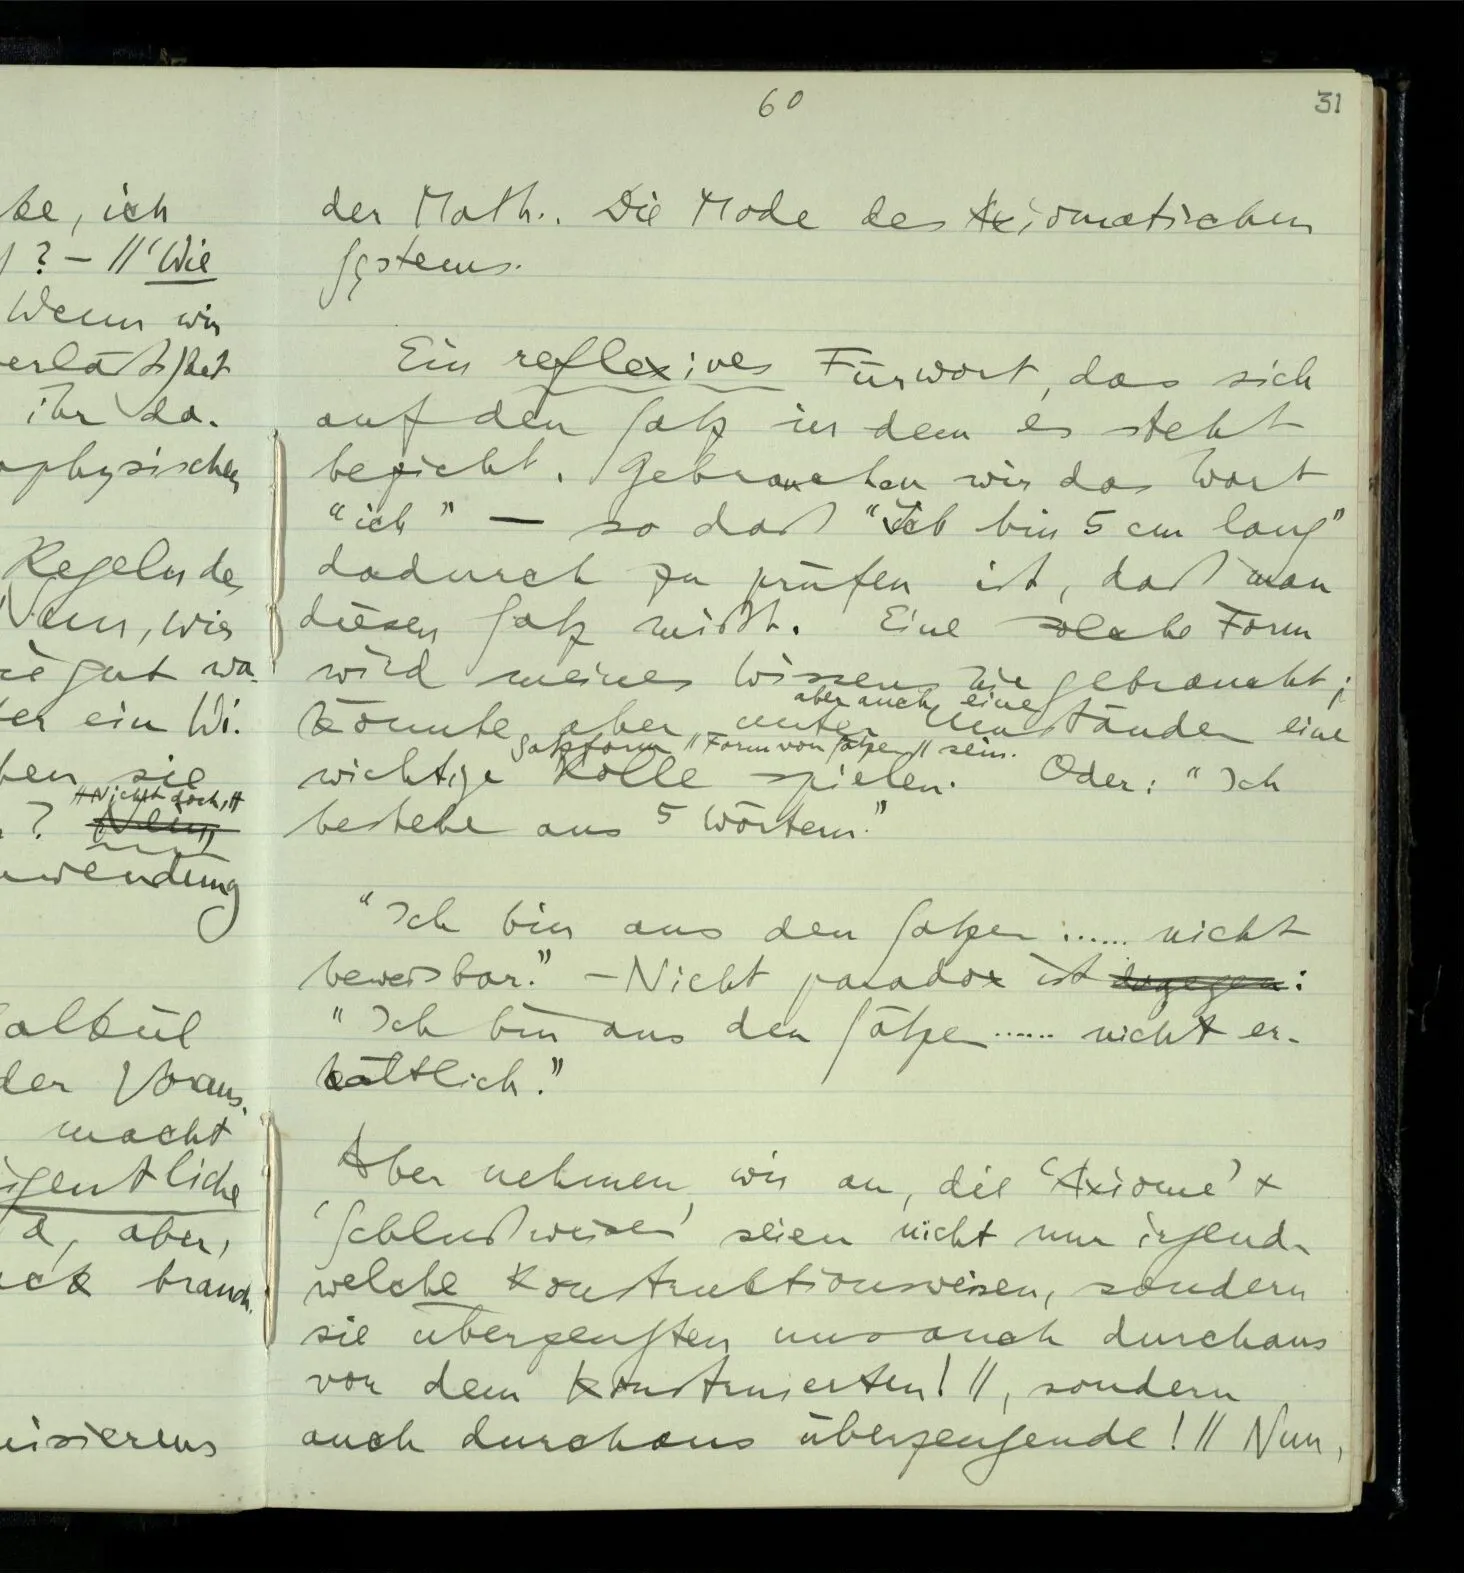 60
31
ke, ich
? – // 'Wie
Wenn wir
ihr da.
ophysischen
Regeln des
gut wa-
er ein Wi.
ben, sie
// Nicht doch, //
? Nein,
nwendung
alkül
der Voraus-
macht
igentliche
a, aber,
uck brauch-
isierens
der Math.. Die Mode des Axiomatischen
Systems.
Ein reflexives Fürwort, das sich
auf den Satz in dem es steht
bezieht. Gebrauchen wir das Wort
"ich" — so daß "Ich bin 5 cm lang"
dadurch zu prüfen ist, daß man
diesen Satz mißt. Eine solche Form
wird meines Wissens nie gebraucht;
aber auch eine
könnte aber unter Umständen eine
Satzform // Form von Sätzen // sein.
wichtige Rolle spielen. Oder: "Ich
bestehe aus 5 Wörtern."
"Ich bin aus den Sätzen ...... nicht
beweisbar." – Nicht paradox ist dagegen:
"Ich bin aus den Sätzen ...... nicht er-
hältlich."
Aber nehmen wir an, die 'Axiome' +
'Schlußweisen' seien nicht nur irgend-
welche Konstruktionsweisen, sondern
sie überzeugten uns auch durchaus
von dem Konstruierten! //, sondern
auch durchaus überzeugende! // Nun,